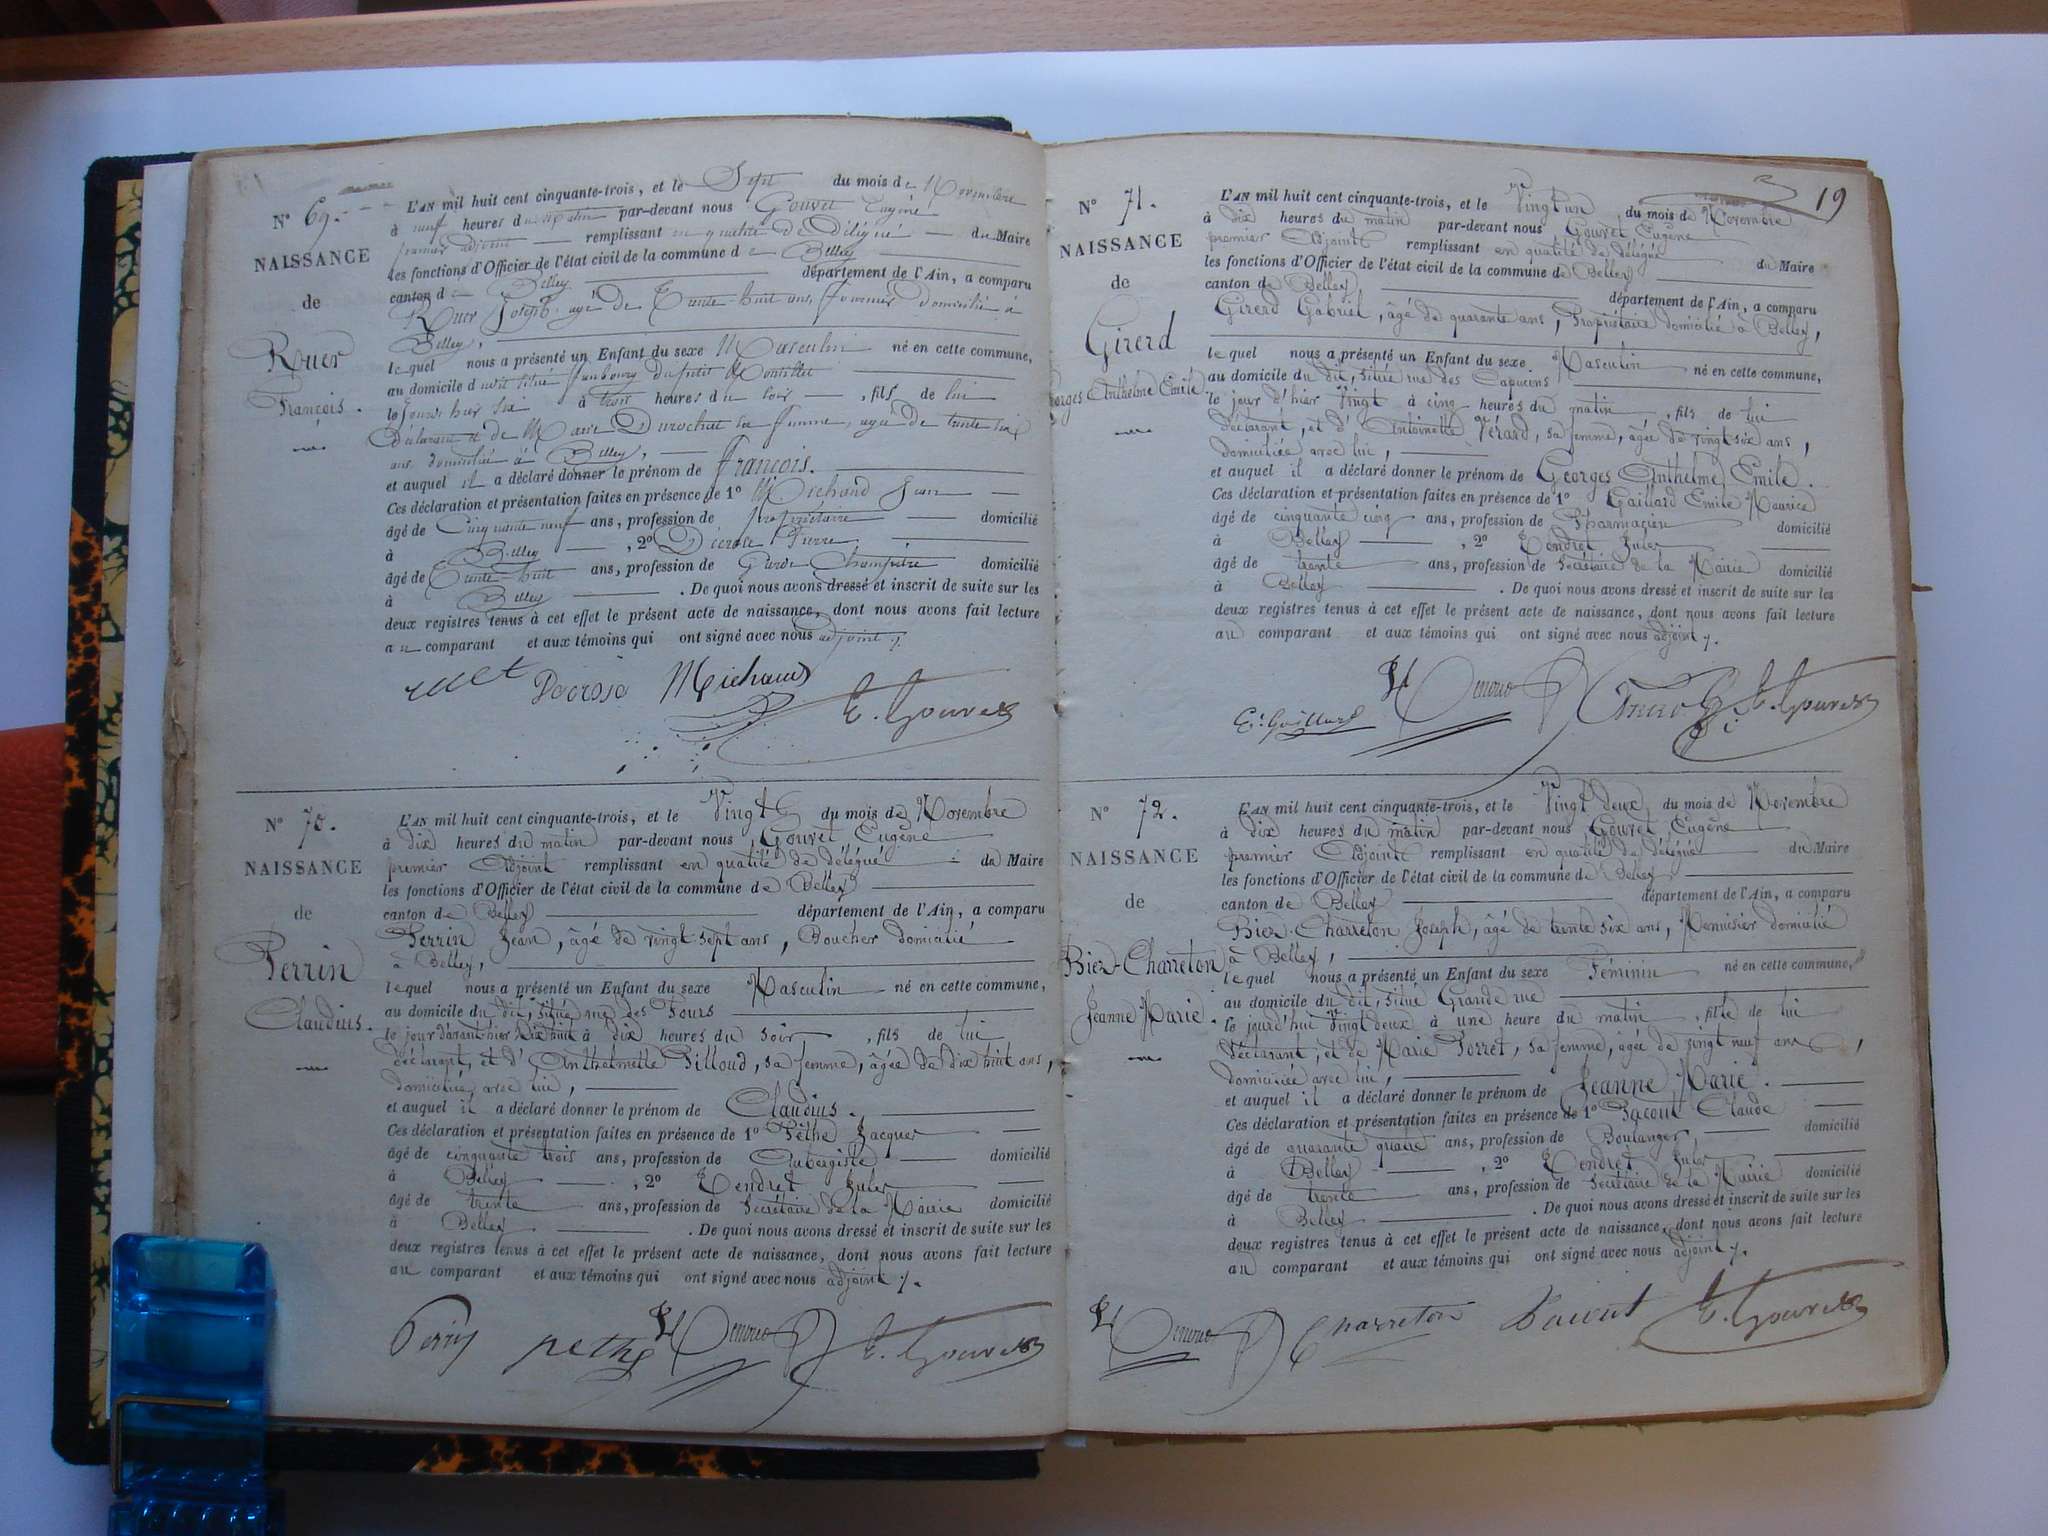 N° 69.
NAISSANCE
de
Rouer
François.
L'AN mil huit cent cinquante-trois, et le Sept du mois de Novembre
à neuf heures du matin par-devant nous Gouvet Eugène
premier adjoint remplissant en qualité de Délégué du Maire
les fonctions d'Officier de l'état civil de la commune de Belley
canton de Belley département de l'Ain, a comparu
Joseph agé de Trente-huit ans, domicilié à
Belley,
lequel nous a présenté un Enfant du sexe Masculin né en cette commune,
au domicile du dit situé faubourg du petit
le jour hier six à trois heures du soir, fils de lui
Déclarant et de Marie Durochat sa femme, agée de trente six
ans domiciliée à Belley,
et auquel il a déclaré donner le prénom de François.
Ces déclaration et présentation faites en présence de 1° Michaud Jean
âgé de Cinquante neuf ans, profession de propriétaire domicilié
à Belley, 2° Décrose Pierre
âgé de Trente-huit ans, profession de Garde Champêtre domicilié
à Belley. De quoi nous avons dressé et inscrit de suite sur les
deux registres tenus à cet effet le présent acte de naissance, dont nous avons fait lecture
au comparant et aux témoins qui ont signé avec nous adjoint /.
Décrose Michaud
E. Gouvet
N° 70.
NAISSANCE
de
Perrin
Claudius.
L'AN mil huit cent cinquante-trois, et le Vingt du mois de Novembre
à dix heures du matin par-devant nous Gouvet Eugène
premier Adjoint remplissant en qualité de délégué du Maire
les fonctions d'Officier de l'état civil de la commune de Belley
canton de Belley département de l'Ain, a comparu
Perrin Jean, âgé de vingt sept ans, Boucher domicilié
à Belley,
lequel nous a présenté un Enfant du sexe Masculin né en cette commune,
au domicile du dit, situé rue des Fours
le jour d'avant-hier dix huit à dix heures du soir, fils de lui
déclarant, et d'Anthelmette Pilloud, sa femme, âgée de dix huit ans,
domiciliée avec lui,
et auquel il a déclaré donner le prénom de Claudius.
Ces déclaration et présentation faites en présence de 1° Pethe Jacques
âgé de cinquante trois ans, profession de Aubergiste domicilié
à Belley, 2° Tendret Jules
âgé de trente ans, profession de Secrétaire de la Mairie domicilié
à Belley. De quoi nous avons dressé et inscrit de suite sur les
deux registres tenus à cet effet le présent acte de naissance, dont nous avons fait lecture
au comparant et aux témoins qui ont signé avec nous adjoint /.
Perrin pethe E. Gouvet
19
N° 71.
NAISSANCE
de
Girerd
Georges Anthelme Emile
L'AN mil huit cent cinquante-trois, et le Vingt un du mois de Novembre
à dix heures du matin par-devant nous Gouvet Eugène
premier Adjoint remplissant en qualité de délégué du Maire
les fonctions d'Officier de l'état civil de la commune de Belley
canton de Belley, département de l'Ain, a comparu
Girerd Gabriel, âgé de quarante ans, Propriétaire domicilié à Belley,
lequel nous a présenté un Enfant du sexe Masculin né en cette commune,
au domicile du dit, situé rue des Capucins
le jour d'hier vingt à cinq heures du matin, fils de lui
déclarant, et d'Antoinette Vérard, sa femme, âgée de vingt six ans,
domiciliée avec lui,
et auquel il a déclaré donner le prénom de Georges Anthelme Emile.
Ces déclaration et présentation faites en présence de 1° Gaillard Emile Maurice
âgé de cinquante cinq ans, profession de Pharmacien domicilié
à Belley, 2° Tendret Jules
âgé de trente ans, profession de Secrétaire de la Mairie domicilié
à Belley. De quoi nous avons dressé et inscrit de suite sur les
deux registres tenus à cet effet le présent acte de naissance, dont nous avons fait lecture
au comparant et aux témoins qui ont signé avec nous adjoint /.
E. Gaillard E. Gouvet
N° 72.
NAISSANCE
de
Biez-Charreton
Jeanne Marie.
L'AN mil huit cent cinquante-trois, et le Vingt Deux du mois de Novembre
à dix heures du matin par-devant nous Gouvet Eugène
premier Adjoint remplissant en qualité de délégué du Maire
les fonctions d'Officier de l'état civil de la commune de Belley
canton de Belley département de l'Ain, a comparu
Biez-Charreton Joseph, âgé de trente six ans, Menuisier domicilié
à Belley,
lequel nous a présenté un Enfant du sexe Féminin né en cette commune,
au domicile du dit, situé Grande rue
le jourd'hui vingt deux à une heure du matin, fille de lui
Déclarant, et de Marie Porret, sa femme, âgée de vingt neuf ans,
domiciliée avec lui,
et auquel il a déclaré donner le prénom de Jeanne Marie.
Ces déclaration et présentation faites en présence de 1° Claude
âgé de quarante quatre ans, profession de Boulanger, domicilié
à Belley, 2° Tendret Jules
âgé de trente ans, profession de Secrétaire de la Mairie domicilié
à Belley. De quoi nous avons dressé et inscrit de suite sur les
deux registres tenus à cet effet le présent acte de naissance, dont nous avons fait lecture
au comparant et aux témoins qui ont signé avec nous adjoint /.
Charreton E. Gouvet